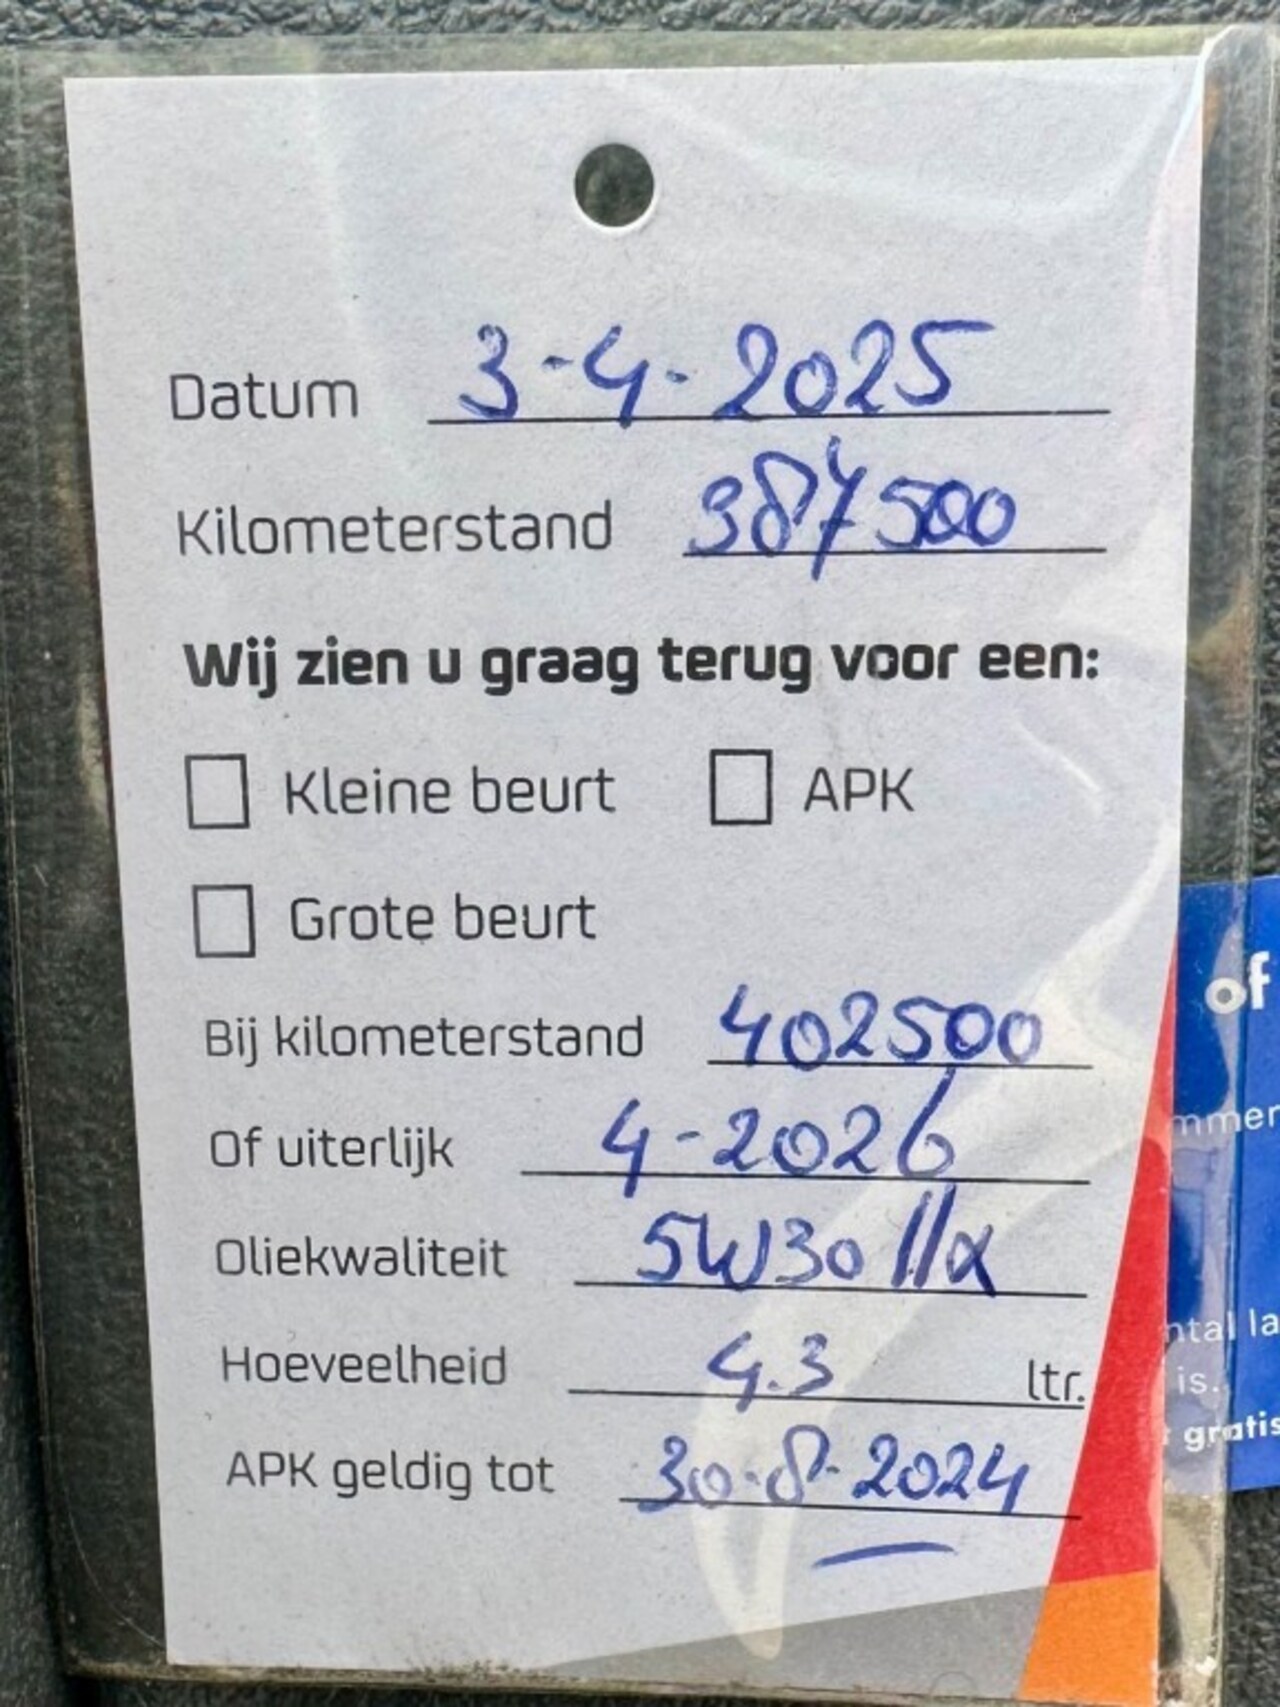 Datum 3-4-2025
Kilometerstand 387500
Wij zien u graag terug voor een:
Kleine beurt APK
Grote beurt
Bij kilometerstand 402500
Of uiterlijk 4-2026
Oliekwaliteit 5W30 lla
Hoeveelheid 4.3 ltr.
APK geldig tot 30-8-2024
of
is.
gratis